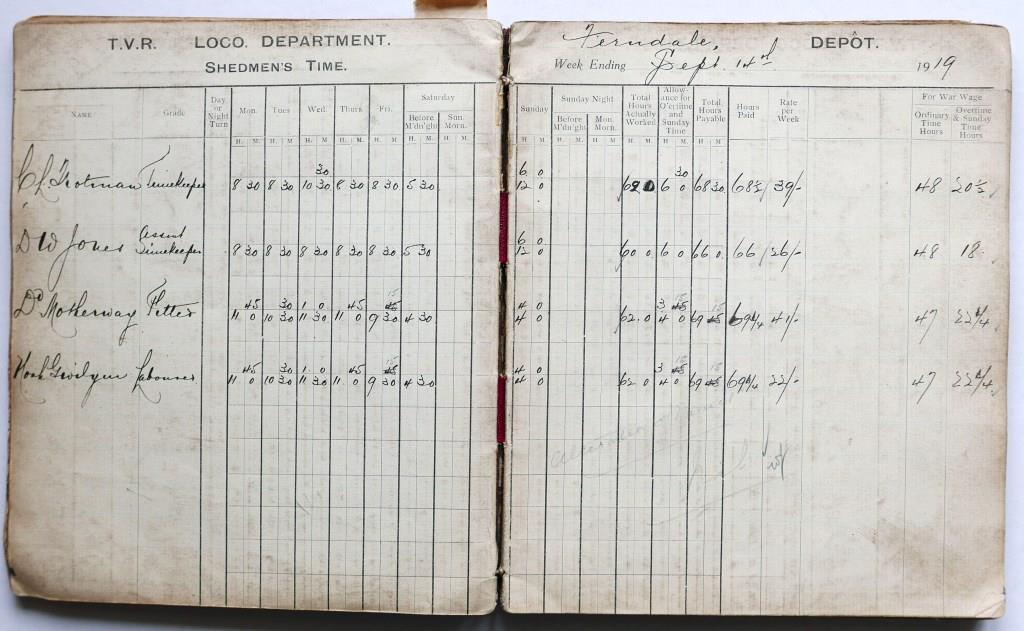 T.V.R. LOCO. DEPARTMENT.
SHEDMEN'S TIME.
Ferndale, DEPÔT.
Week Ending Sept. 14th 1919
NAME Grade Day or Night Turn Mon. Tues Wed. Thurs Fri. Saturday Before M'dn'ght Sun. Morn.
Sunday Sunday Night Before M'dn'ght Mon. Morn. Total Hours Actually Worked Allowance for O'ertime and Sunday Time Total Hours Payable Hours Paid Rate per Week For War Wage Ordinary Time Hours Overtime & Sunday Time Hours
H. M. H. M. H. M. H. M. H. M. H. M. H. M.
H M H. M. H. M. H M H M H M
30 6 0 30
Trotman Timekeeper 8 30 8 30 10 30 8 30 8 30 5 30 12 0 62 0 6 0 68 30 68½ 39/- 48 20½
Assist 6 0
D W Jones Timekeeper 8 30 8 30 8 30 8 30 8 30 5 30 12 0 60 0 6 0 66 0 66 26/- 48 18
45 30 1 0 45 15 45 4 0 3 15 45 15
Motherway Fitter 11 0 10 30 11 30 11 0 9 30 4 30 4 0 62 0 4 0 69 45 69¼ 41/- 47 22¼
45 30 1 0 45 15 45 4 0 3 15 45 15
Noah Gwilym Labourer 11 0 10 30 11 30 11 0 9 30 4 30 4 0 62 0 4 0 69 45 69¼ 22/- 47 22¼